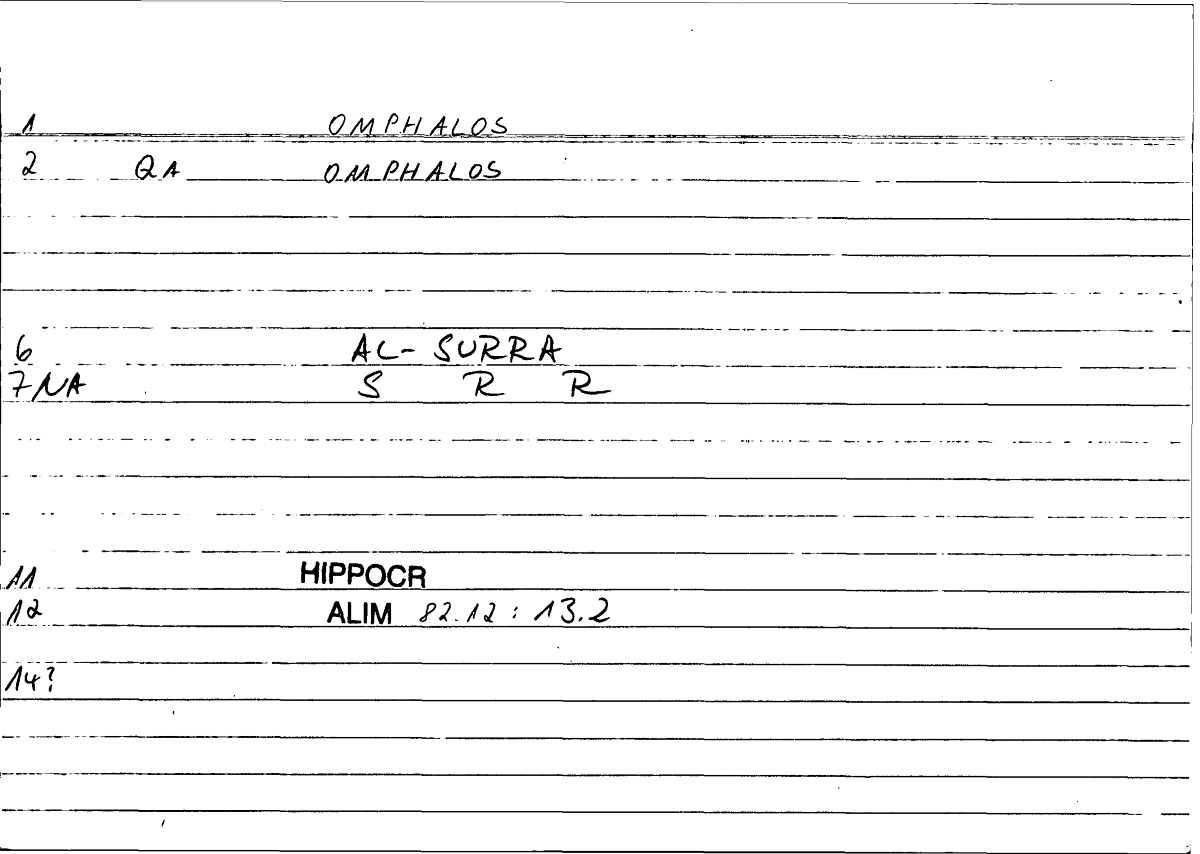 1 OMPHALOS
2 QA OMPHALOS
6 AL-SURRA
7 NA S R R
11 HIPPOCR
12 ALIM 82.12 : 13.2
14?